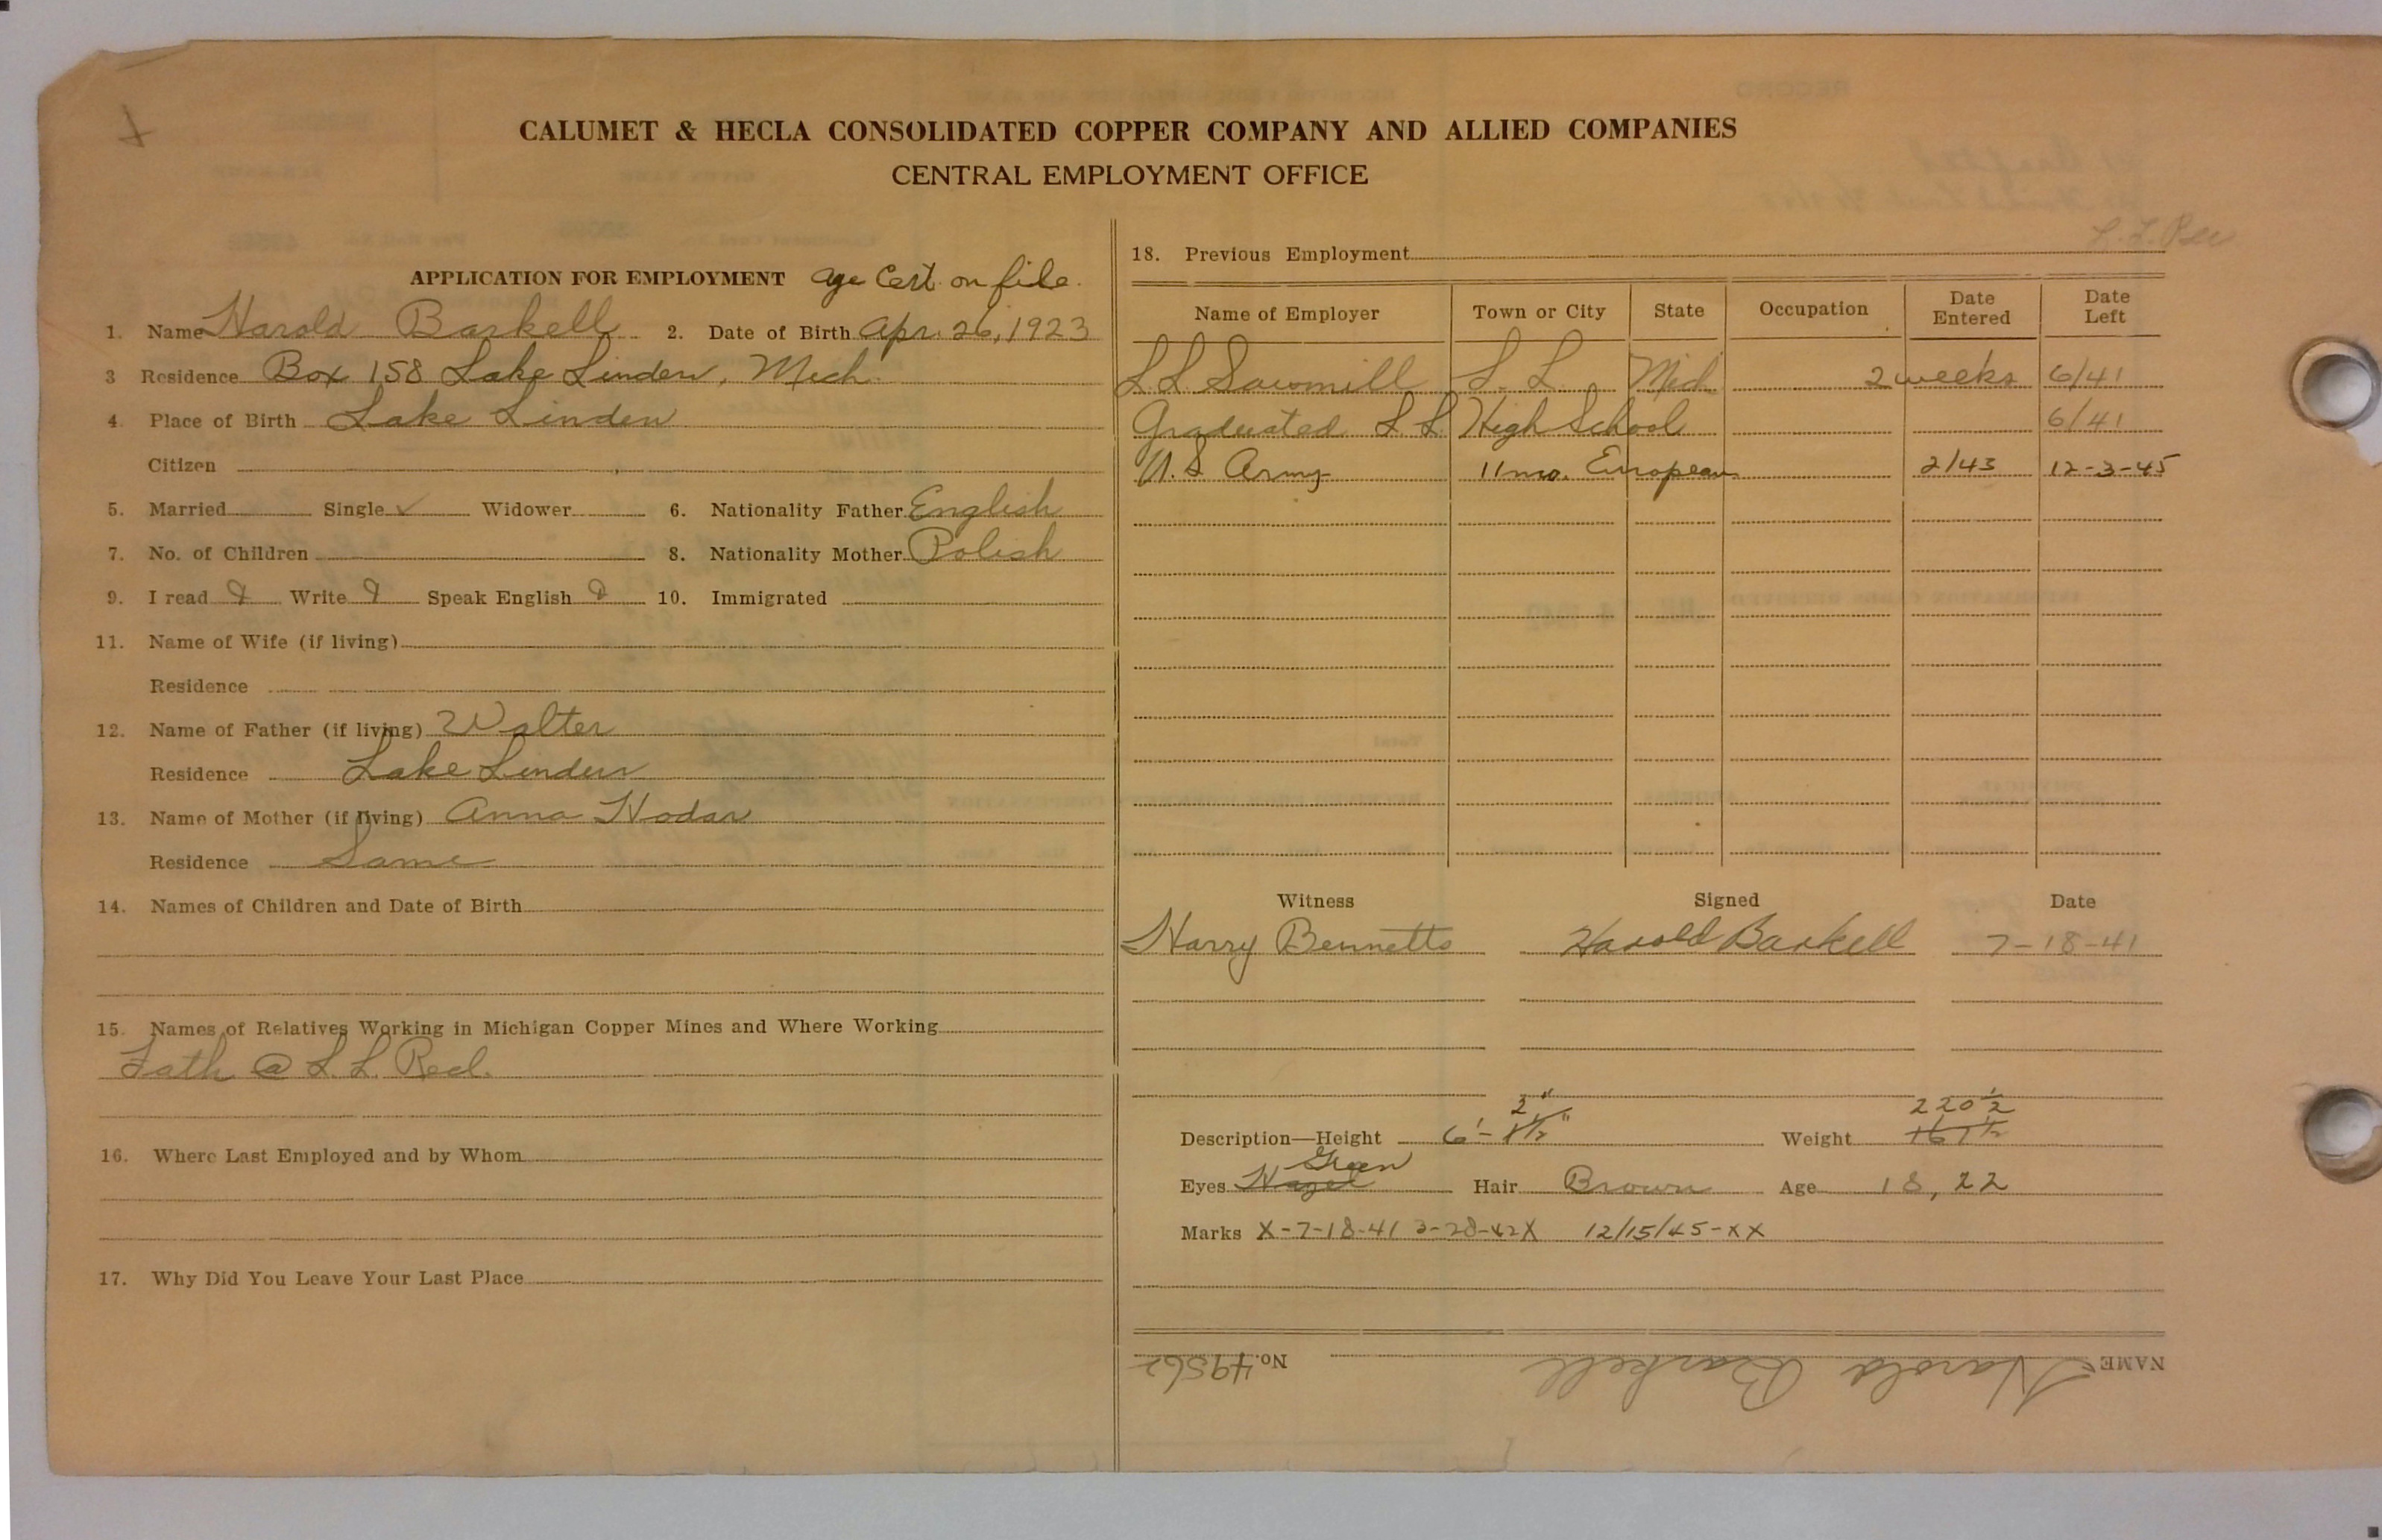 CALUMET & HECLA CONSOLIDATED COPPER COMPANY AND ALLIED COMPANIES
CENTRAL EMPLOYMENT OFFICE
APPLICATION FOR EMPLOYMENT Age Cert. on file.
1. Name Harold Barkell 2. Date of Birth Apr. 26, 1923
3 Residence Box 158 Lake Linden, Mich.
4. Place of Birth Lake Linden
Citizen
5. Married Single ✓ Widower 6. Nationality Father English
7. No. of Children 8. Nationality Mother Polish
9. I read Write Speak English 10. Immigrated
11. Name of Wife (if living)
Residence
12. Name of Father (if living) Walter
Residence Lake Linden
13. Name of Mother (if living) Anna Hodar
Residence Same
14. Names of Children and Date of Birth
15. Names of Relatives Working in Michigan Copper Mines and Where Working
Fath @ L. L. Recl.
16. Where Last Employed and by Whom
17. Why Did You Leave Your Last Place
18. Previous Employment
Name of Employer Town or City State Occupation Date Entered Date Left
L L Sawmill L. L. Mich 2 weeks 6/41
Graduated L. L. High School 6/41
U.S Army 11 mo. European 2/43 12-3-45
Witness Signed Date
Harry Bennetts Harold Barkell 7-18-41
2" 220 1/2
Description—Height 6'- 1 1/2" Weight 167 1/2
Green
Eyes Hazel Hair Brown Age 18, 22
Marks X-7-18-41 3-28-42X 12/15/45-XX
NAME Harold Barkell No. 49562